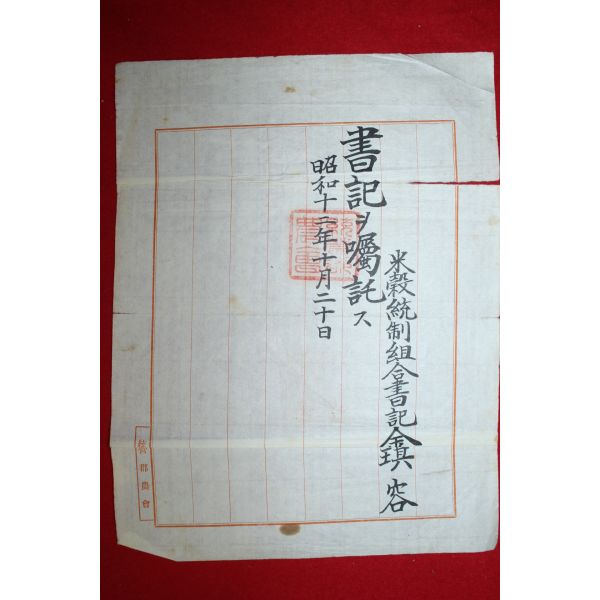 米穀統制組合書記 金鎭容
書記ヲ囑託ス
昭和十二年十月二十日
郡農會